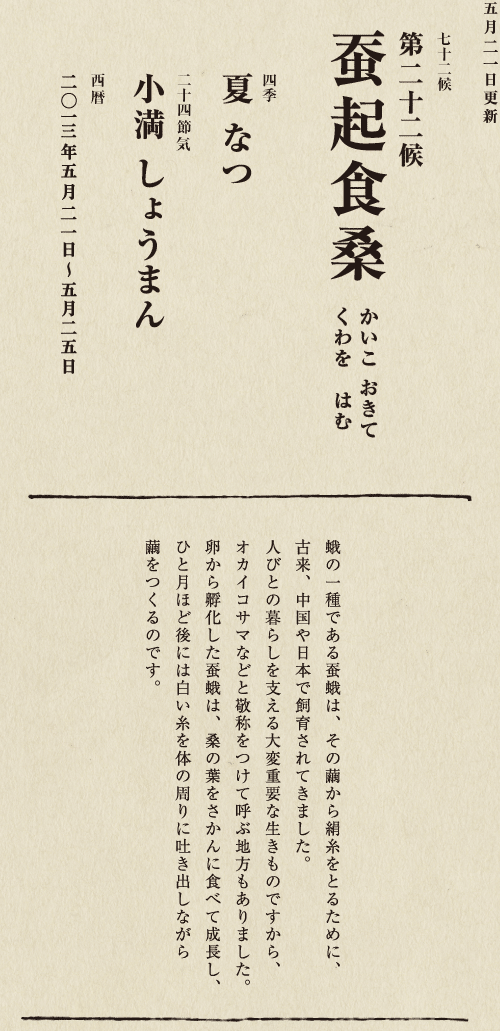 五月二一日更新
七十二候
第二十二候
蚕起食桑
かいこ おきて
くわを はむ
四季
夏 なつ
二十四節気
小満 しょうまん
西暦
二〇一三年五月二一日〜五月二五日
蛾の一種である蚕蛾は、その繭から絹糸をとるために、
古来、中国や日本で飼育されてきました。
人びとの暮らしを支える大変重要な生きものですから、
オカイコサマなどと敬称をつけて呼ぶ地方もありました。
卵から孵化した蚕蛾は、桑の葉をさかんに食べて成長し、
ひと月ほど後には白い糸を体の周りに吐き出しながら
繭をつくるのです。